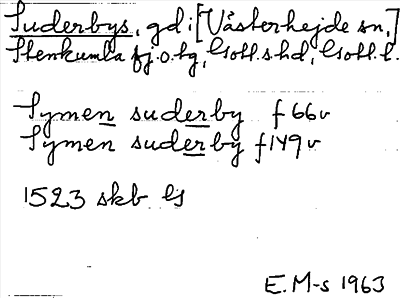 Suderbys, gd i [Västerhejde sn,]
Stenkumla fj. o. tg, Gotl. s hd, Gotl. l.
Symen suderby f 66v
Symen suderby f 149v
1523 skb
E. M-s 1963